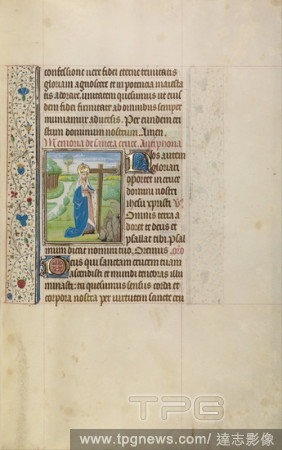 confessione vere fidei eterne trinitatis
gloriam agnoscere et in potencia maiesta
tis adorare unitatem quesumus ut eius
dem fidei firmitate ab omnibus semper
muniamur adversis. Per eundem cri
stum dominum nostrum. Amen.
Memoria de sancta cruce. Antiphona
Nos autem
gloriari
oportet in cruce
domini nostri
ihesu xpristi
Omnis terra a
doret te deus et
psallat tibi. Psal
mum dicat nomini tuo. Oremus. oro
Deus qui sanctam crucem tuam
ascendisti et mundi tenebras illu
minasti tu quesumus sensus corda et
corpora nostra per virtutem sancte cru
TPG
www.tpgnews.com / 達志影像